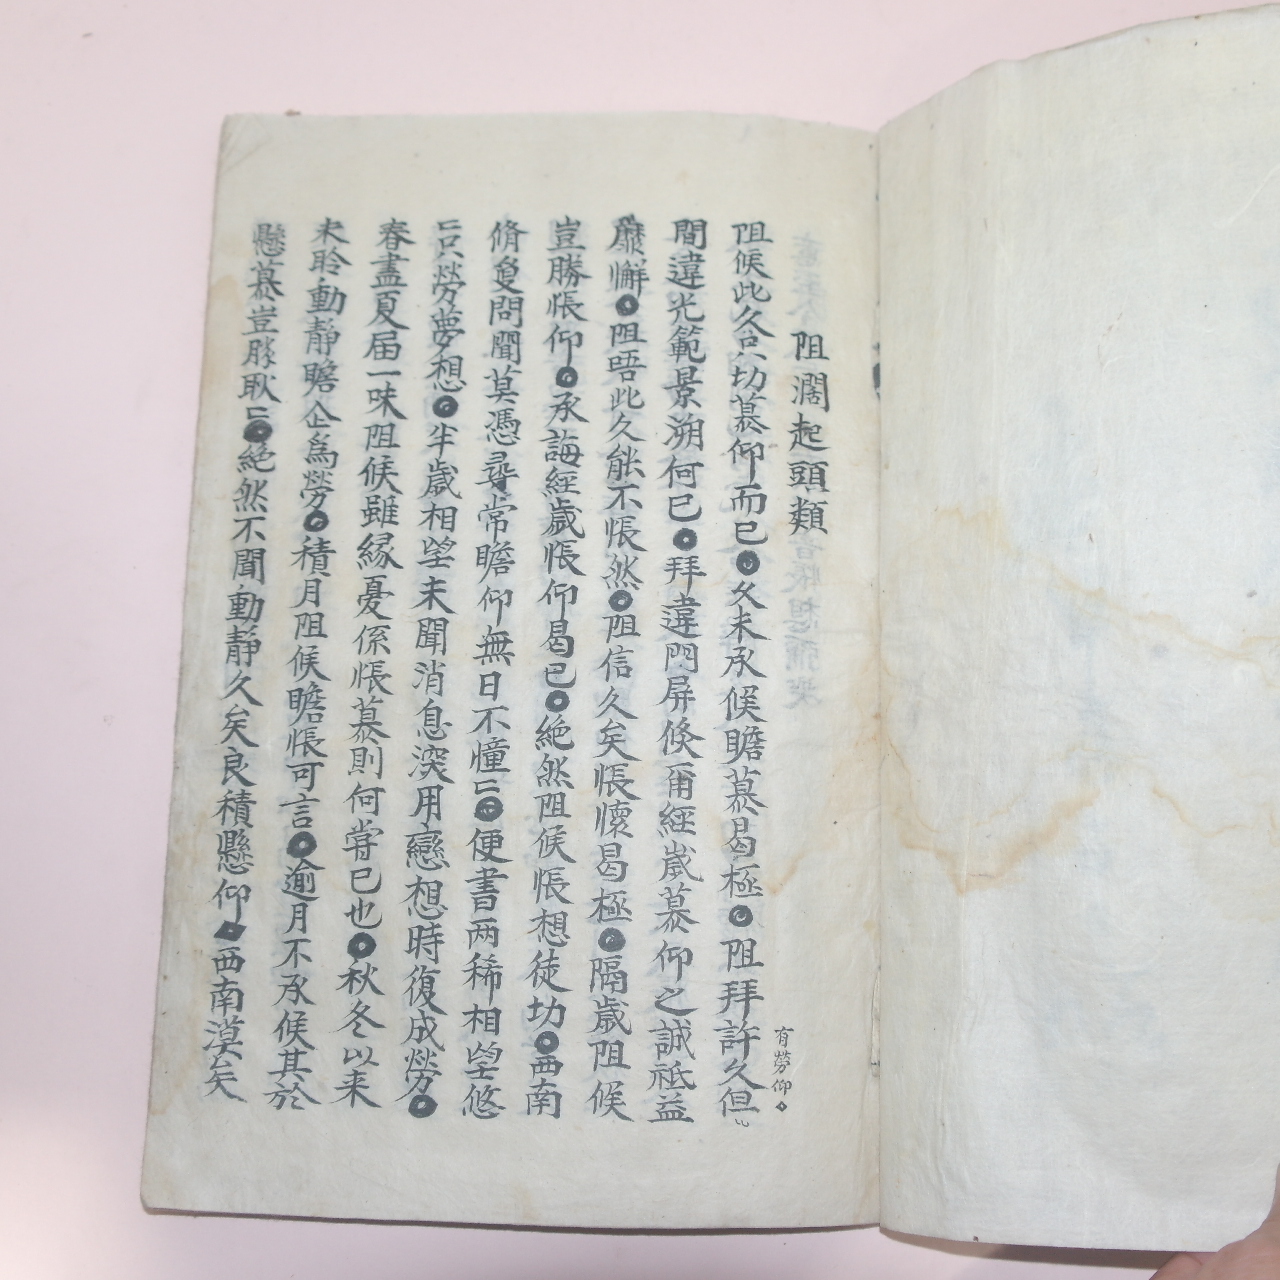 阻濶起頭類
阻候此久只切慕仰而已○久未承候瞻慕曷極○阻拜許久但
有勞仰○
間違光範景溯何已○拜違門屏倐爾經歲慕仰之誠祗益
靡懈○阻晤此久能不悵然○阻信久矣悵懷曷極○隔歲阻候
豈勝悵仰○承誨經歲悵仰曷已○絶然阻候悵想徒切○西南
脩夐問聞莫憑尋常瞻仰無日不憧〻○便書兩稀相望悠
〻只勞夢想○半歲相望未聞消息深用戀想時復成勞○
春盡夏届一味阻候雖緣憂係悵慕則何嘗已也○秋冬以来
未聆動靜瞻企爲勞○積月阻候瞻悵可言○逾月不承候其於
懸慕豈勝耿〻○絶然不聞動靜久矣良積懸仰○西南漠矣